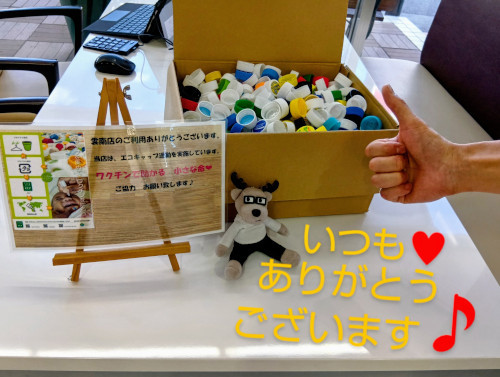 雲南店のご利用ありがとうございます。
当店は、エコキャップ運動を実施しています。
ワクチンで助かる 小さな命♥
ご協力 お願い致します♪
いつも♥
ありがとう
ございます♪